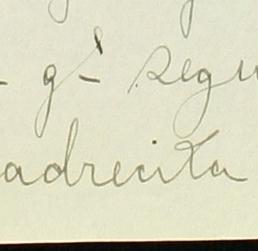 - gł - segu
adrecita